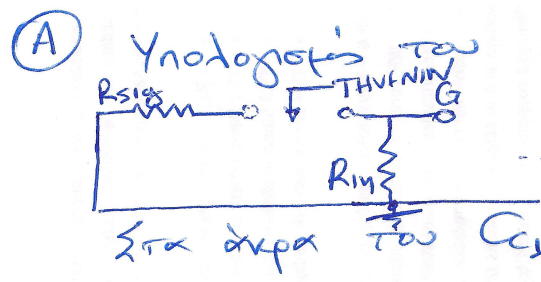 Α Υπολογισμός του
THVENIN
Rsig
G
Rin
Στα άκρα του Cc1